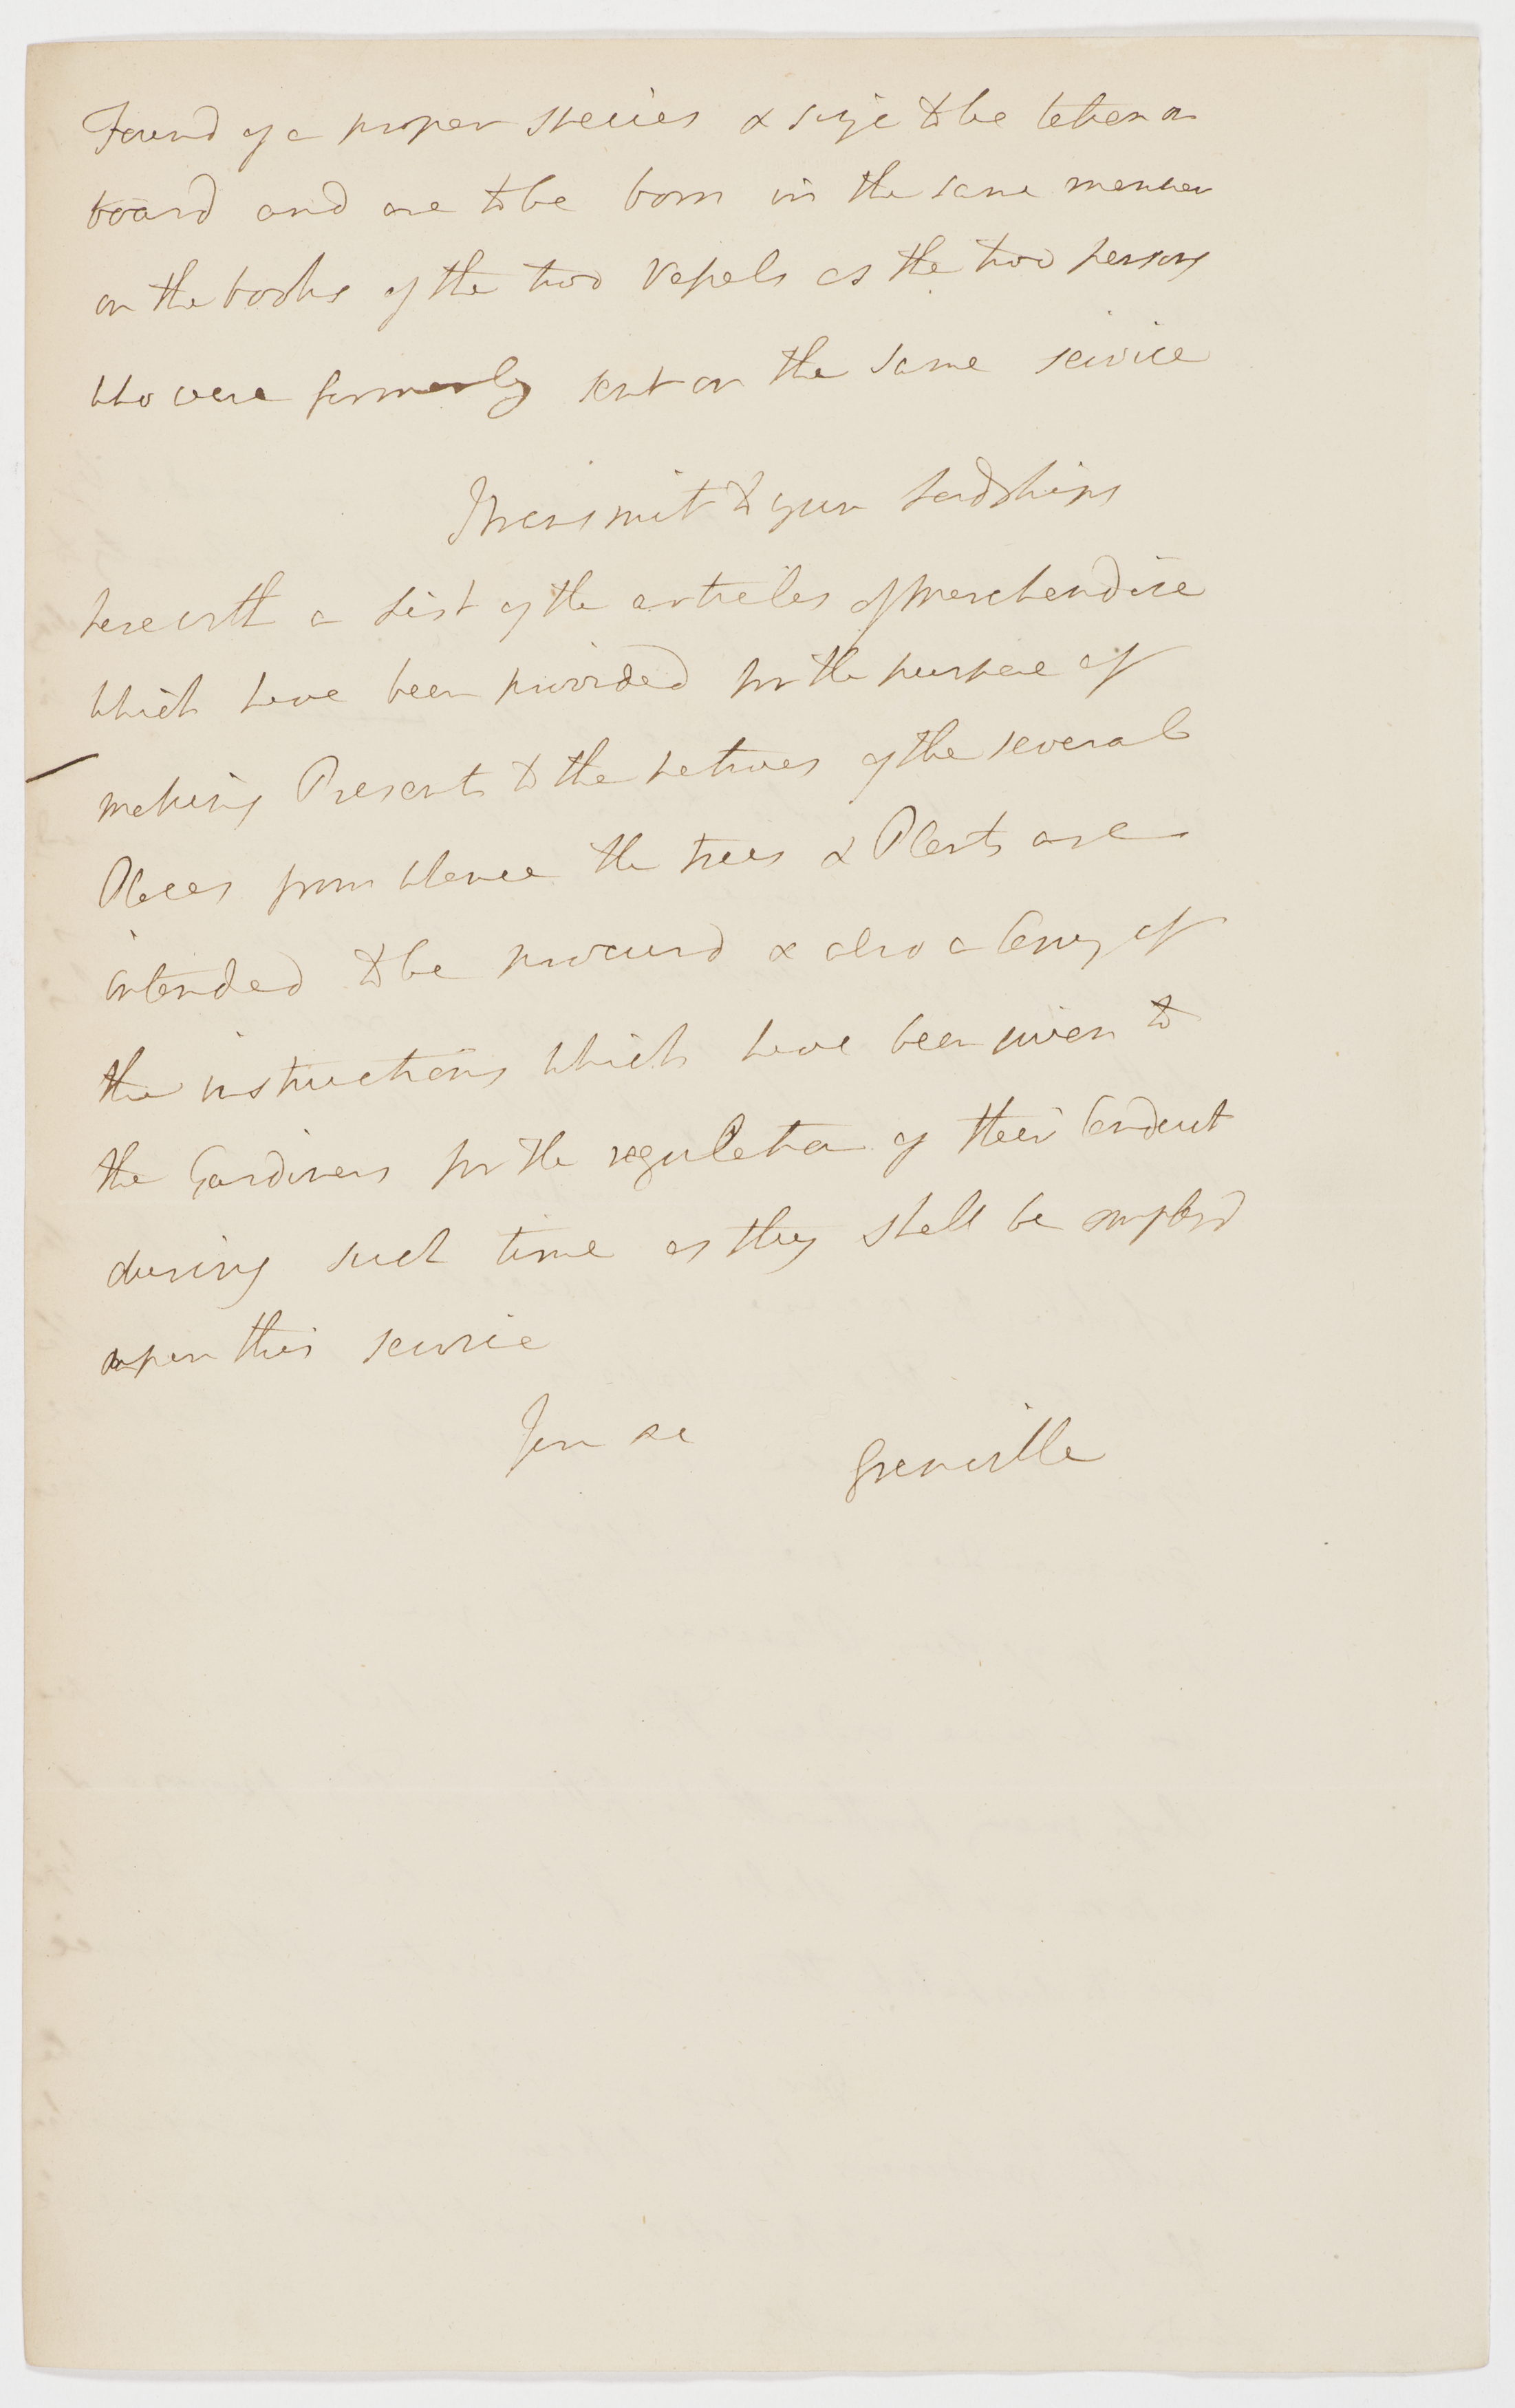 Found of a proper species & size to be taken on
board and are to be born in the same manner
on the books of the two Vessels as the two persons
who were formerly sent on the same service
I transmit to your Lordships
herewith a List of the articles of Merchandise
which have been provided for the purpose of
making Presents to the natives of the several
Places from whence the trees & Plants are
intended to be procurd & also a Copy of
the instructions which have been given to
the Gardiners for the regulation of their Conduct
during such time as they shall be employd
upon this service
I am &c
Grenville